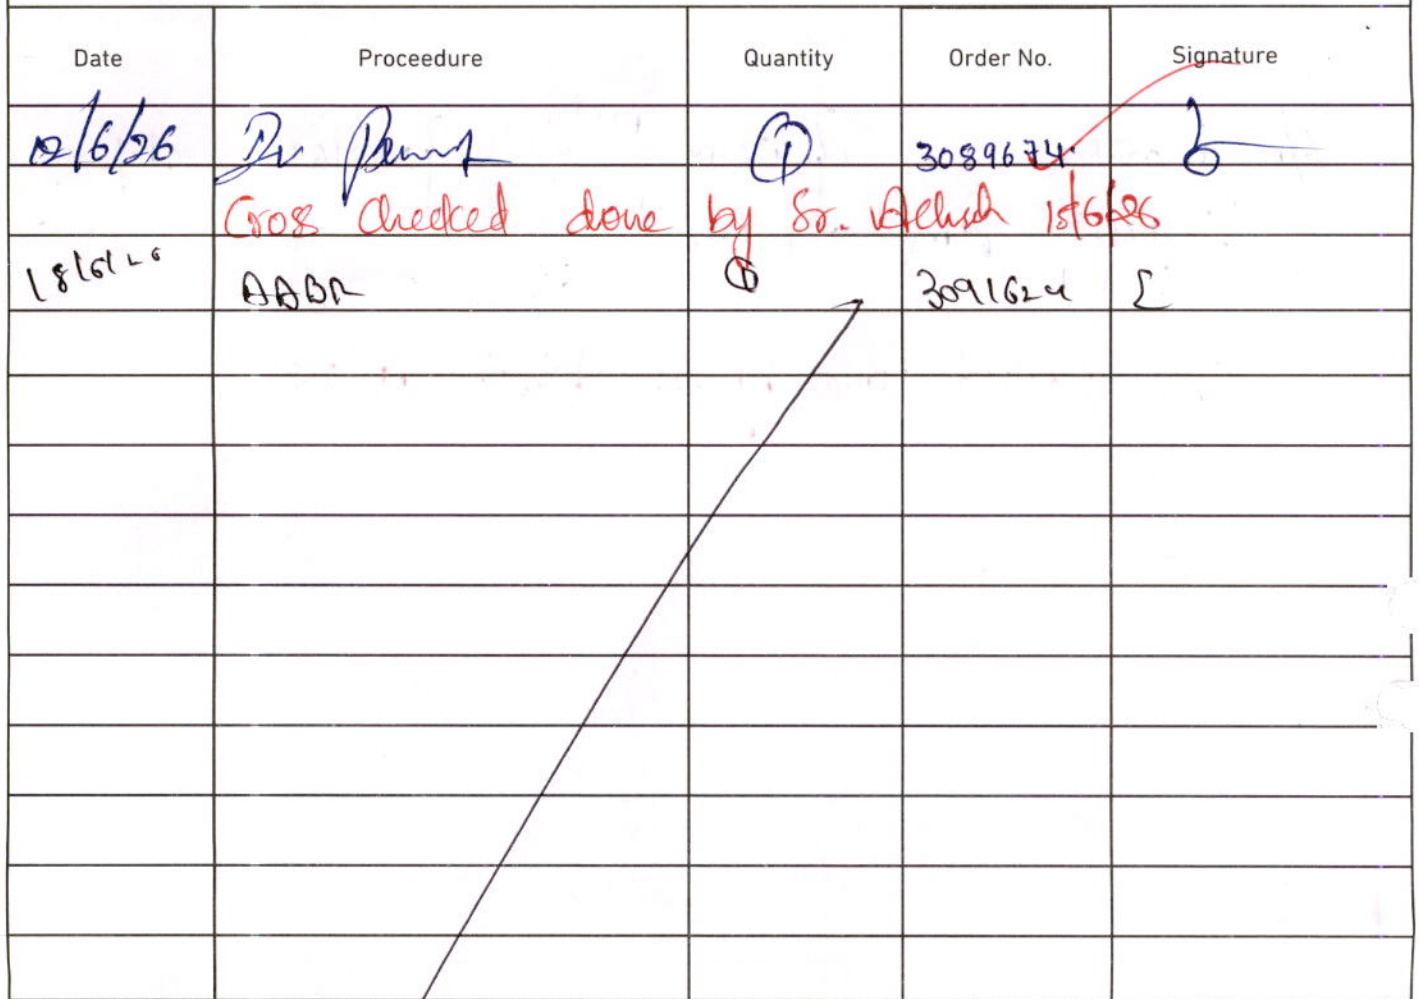 Date Proceedure Quantity Order No. Signature
12/6/26 Dr 1 3089674
Cross Checked done by Sr. 15/6/26
18/6/26 1 3091624